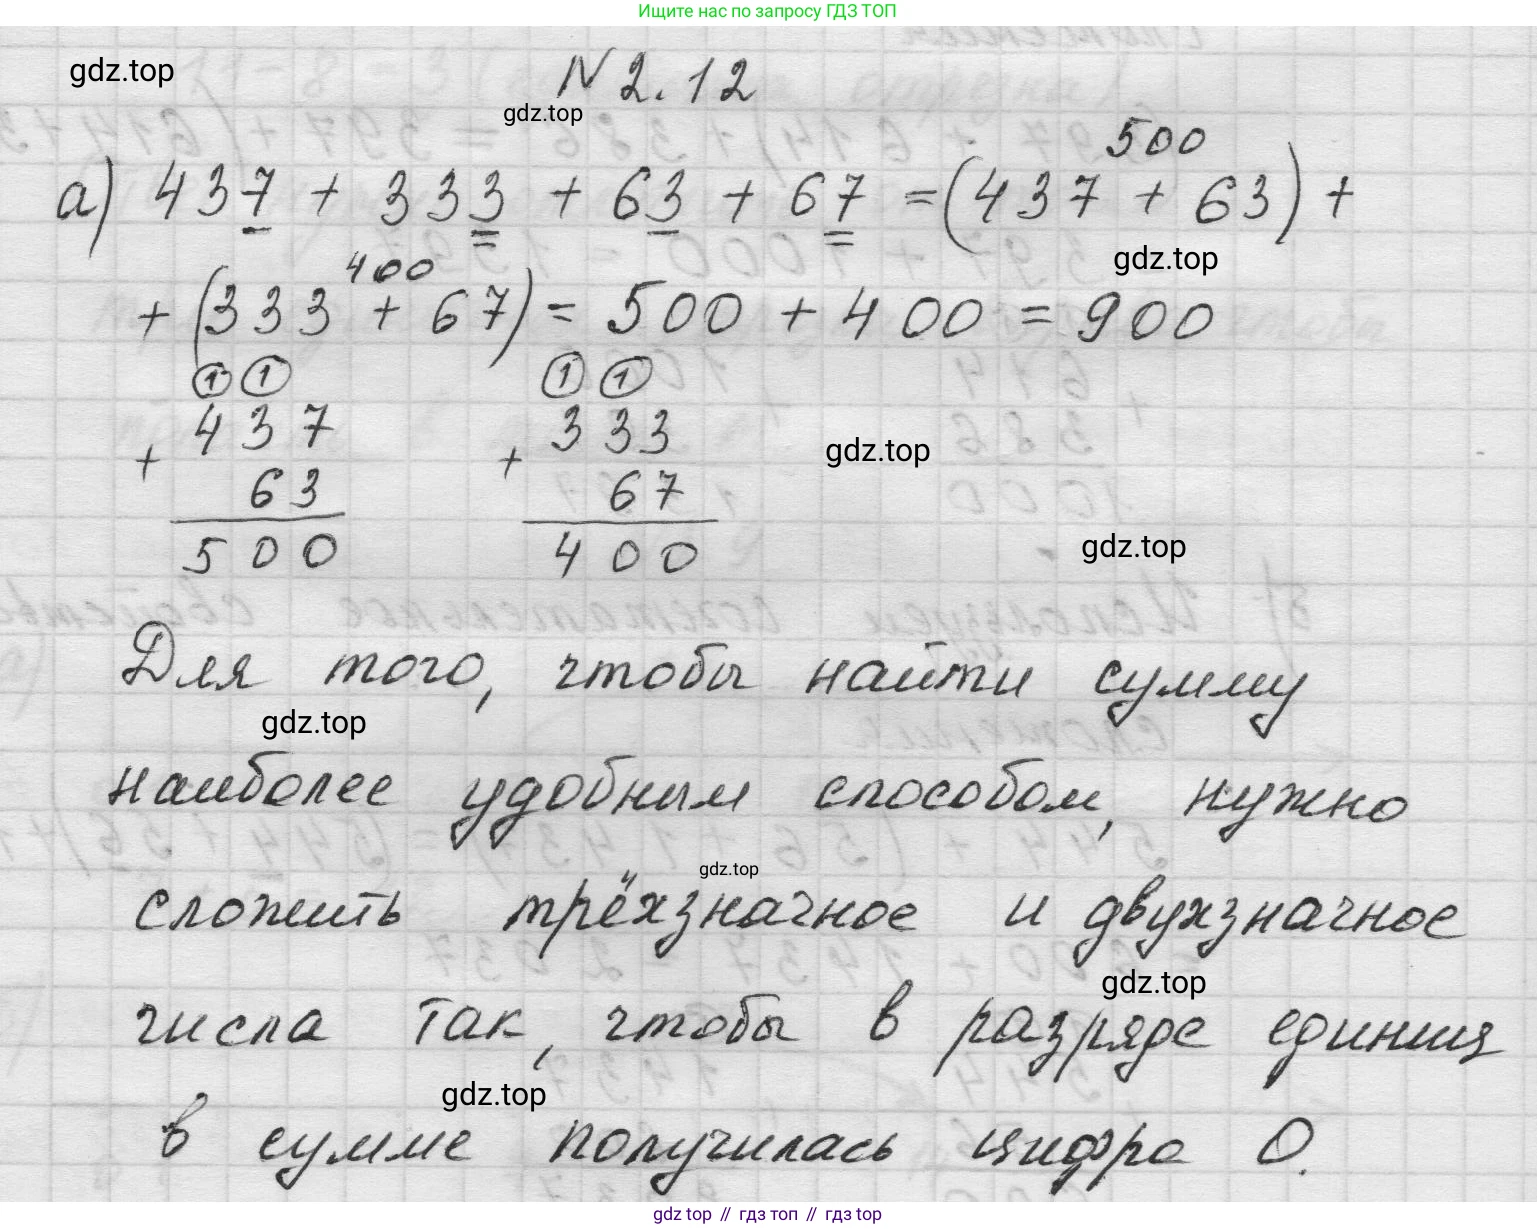 Ищите нас по запросу ГДЗ ТОП
gdz.top
N 2.12
gdz.top
500
а) 437 + 333 + 63 + 67 = (437 + 63) +
gdz.top
400
+ (333 + 67) = 500 + 400 = 900
1 1 1 1
437 333
+ +
gdz.top
63 67
500 400
gdz.top
Для того, чтобы найти сумму
gdz.top
наиболее удобным способом, нужно
gdz.top
сложить трёхзначное и двухзначное
gdz.top
числа так, чтобы в разряде единиц
gdz.top
в сумме получилась цифра 0.
gdz.top // гдз топ // гдз.top